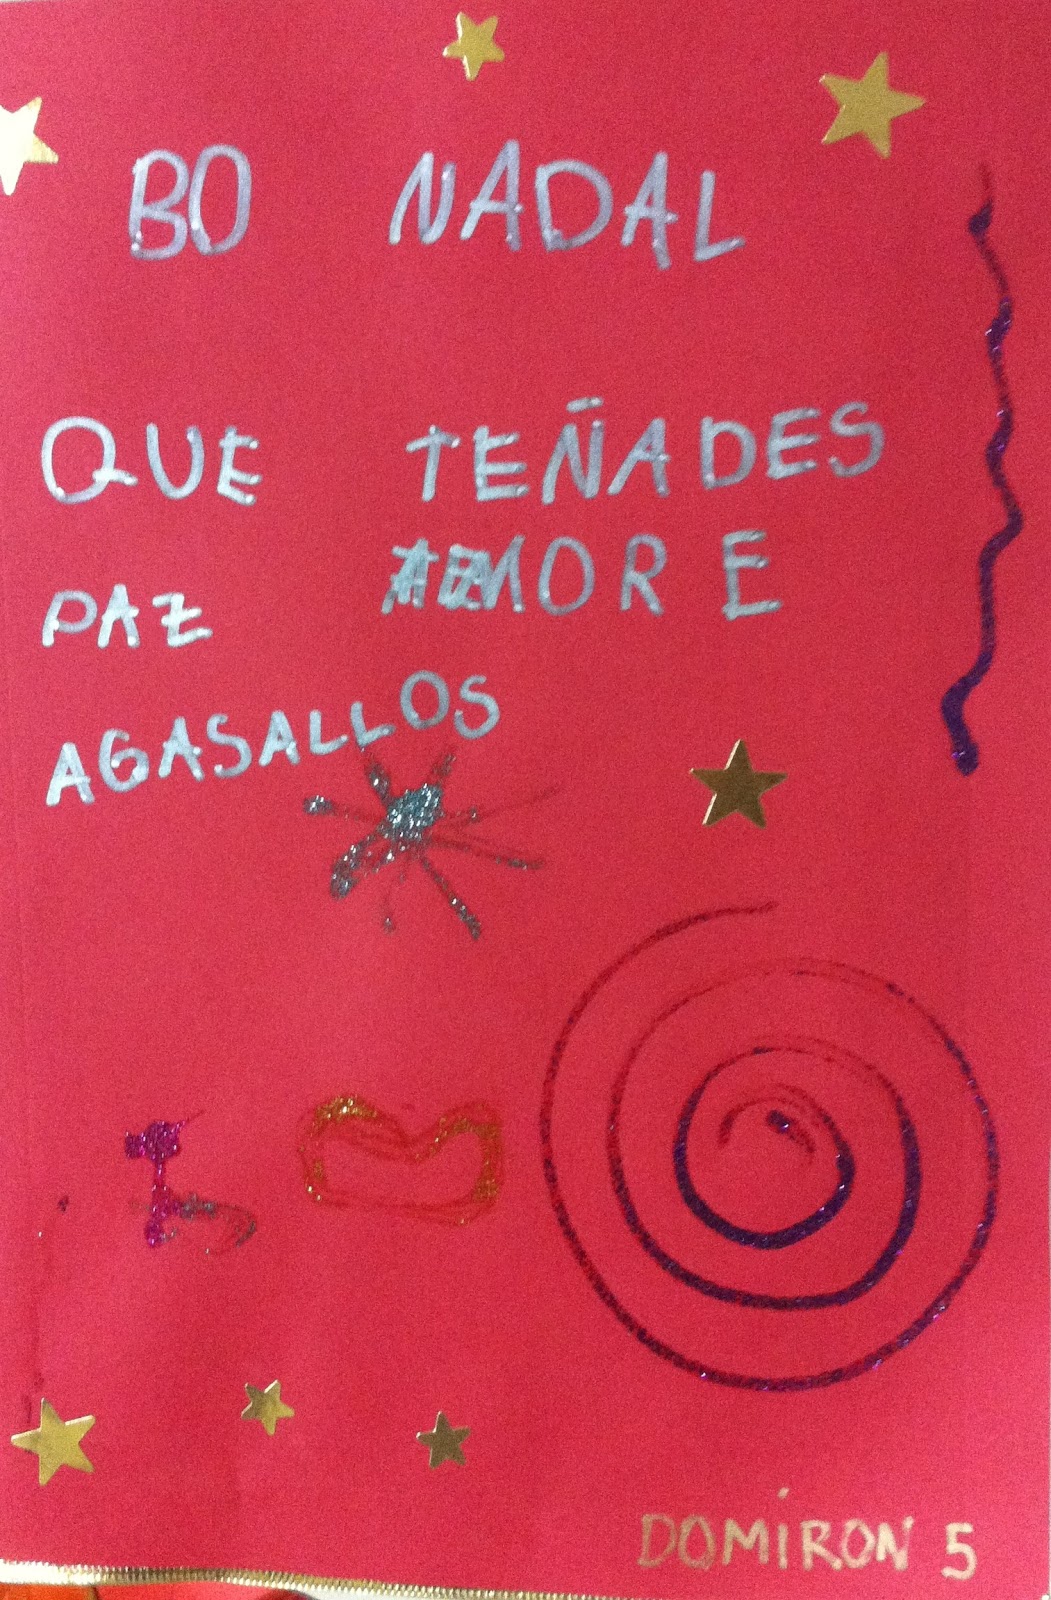 BO NADAL
QUE TEÑADES
PAZ AMOR E
AGASALLOS
DOMIRON 5